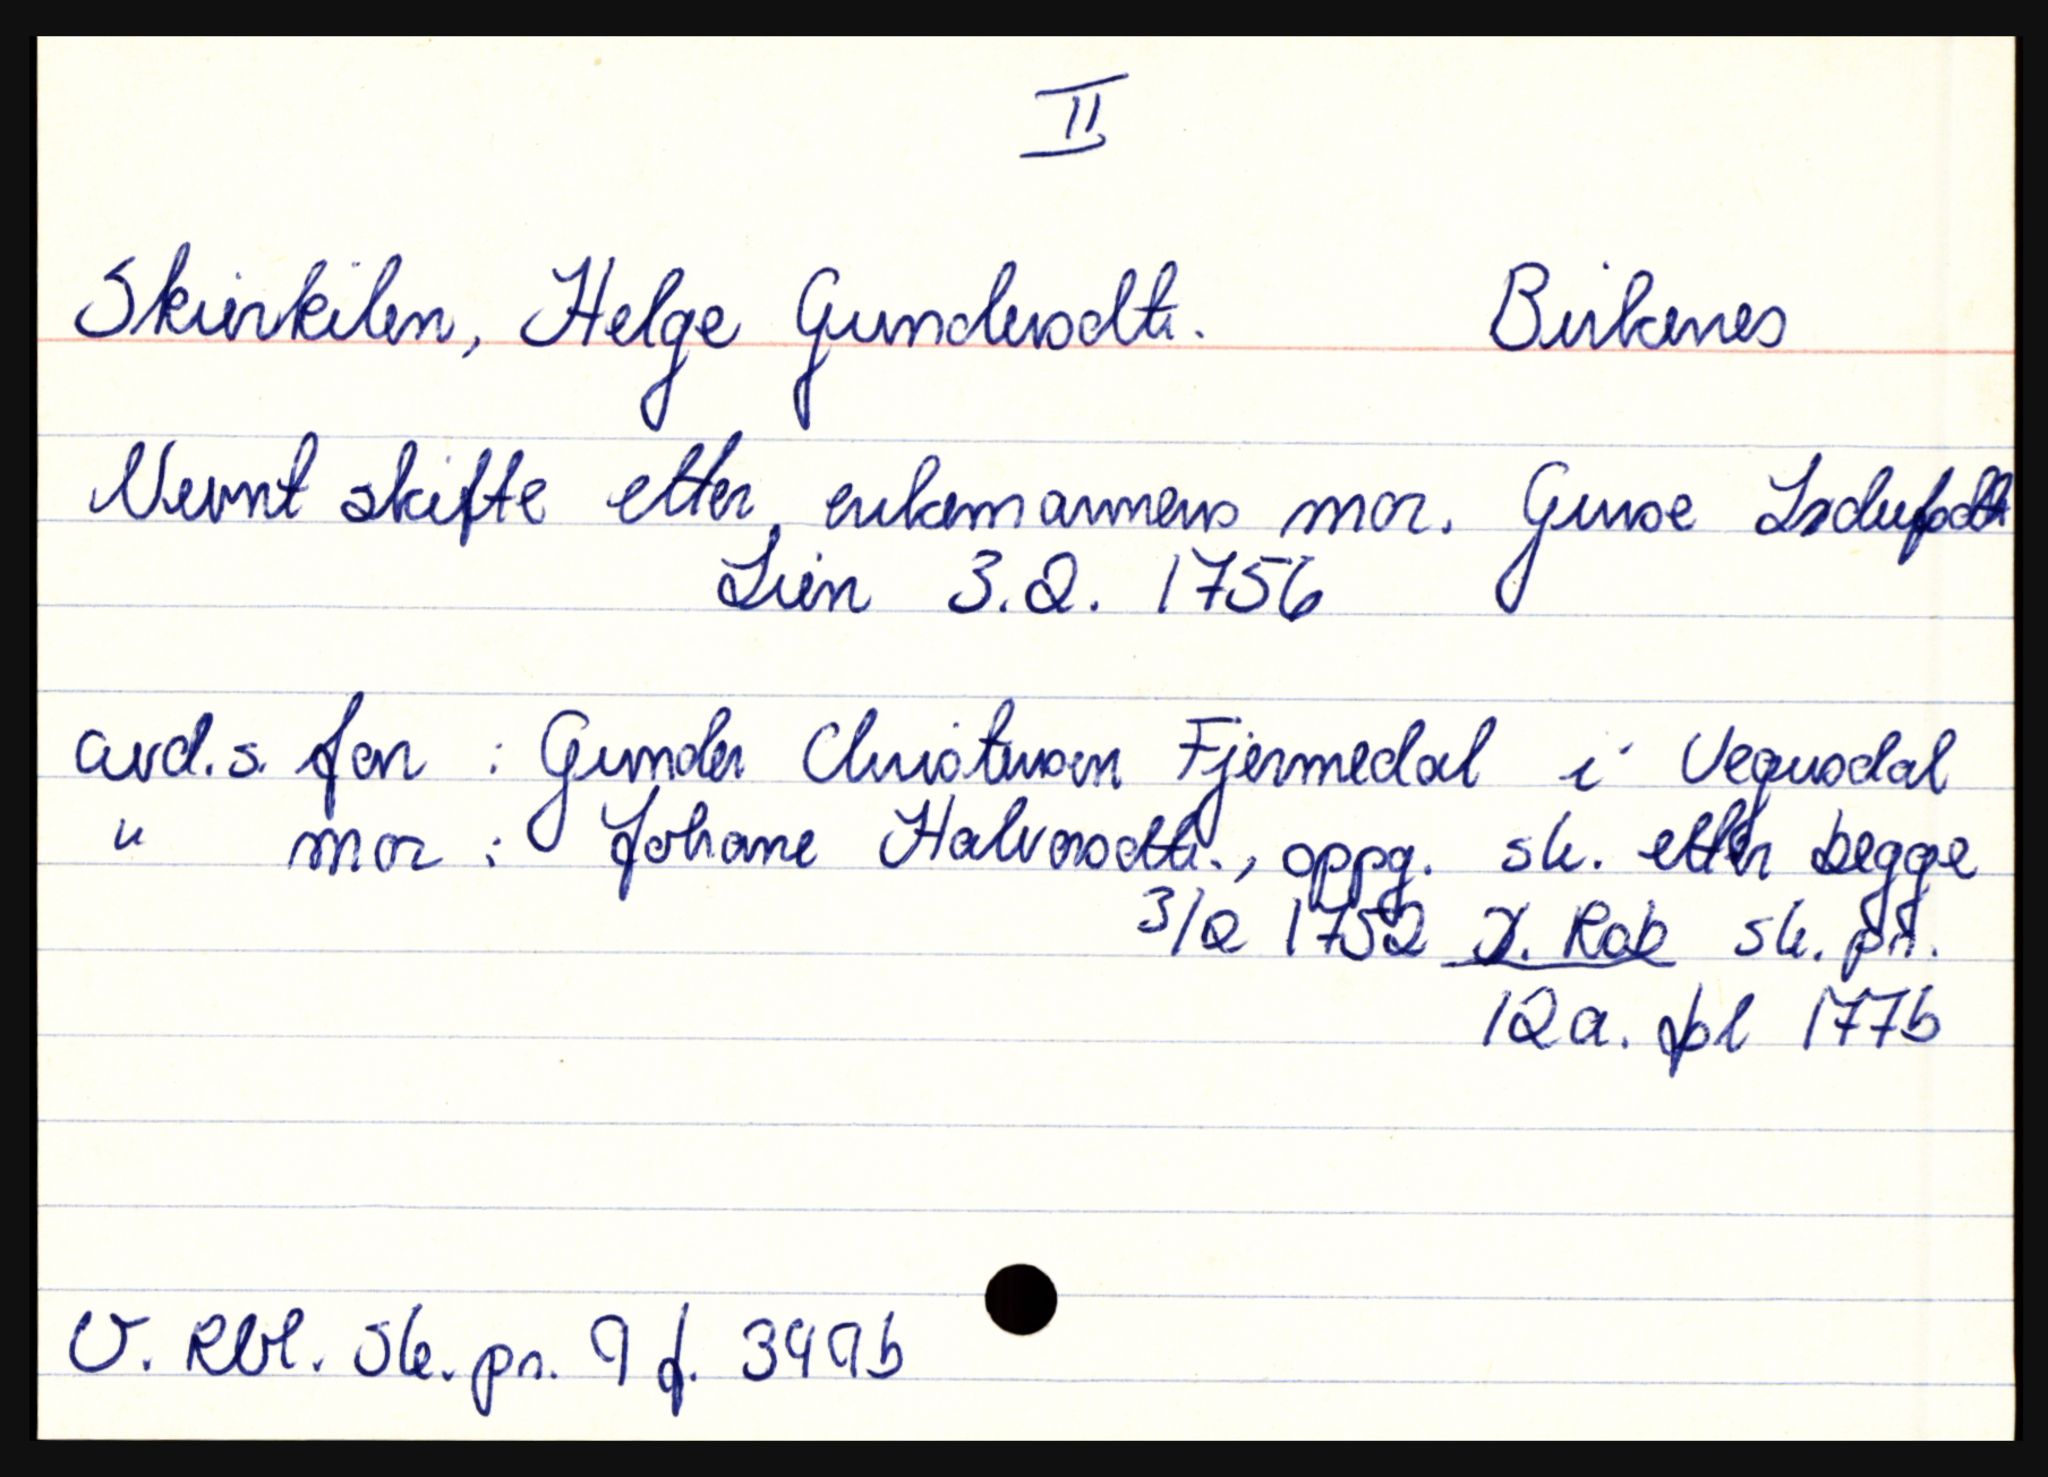 II
Skierkilen, Helge Gundersdtr. Birkenes
Nevnt skifte etter enkemannens mor. Guroe
Lien 3.2. 1756
avd.s. far : Gunder Christensen Fjermedal i Vegusdal
" mor : Johane Halvorsdtr., oppg. sk. etter begge
3/2 1752 X. Rab sk. pr.
12a. fol 177b
V. Rbl. Sk. pr. 9 f. 399b